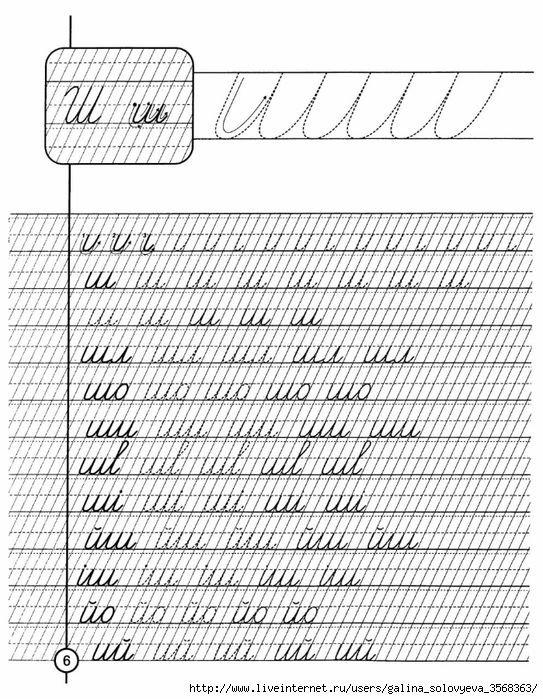 Ш ш
ш ш ш ш ш ш ш ш
ш ш ш ш ш
шл шл шл шл шл
шо шо шо шо шо
ши ши ши ши ши
шв шв шв шв шв
ші ші ші ші ші
йш йш йш йш йш
іш іш іш іш іш
йо йо йо йо йо
шй шй шй шй шй
6
http://www.liveinternet.ru/users/galina_solovyeva_3568363/